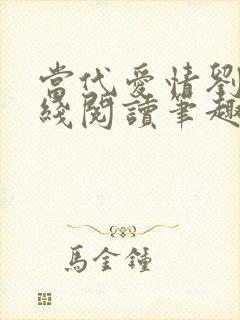 當代愛情劉
綫閱讀筆趣
馬金鍾